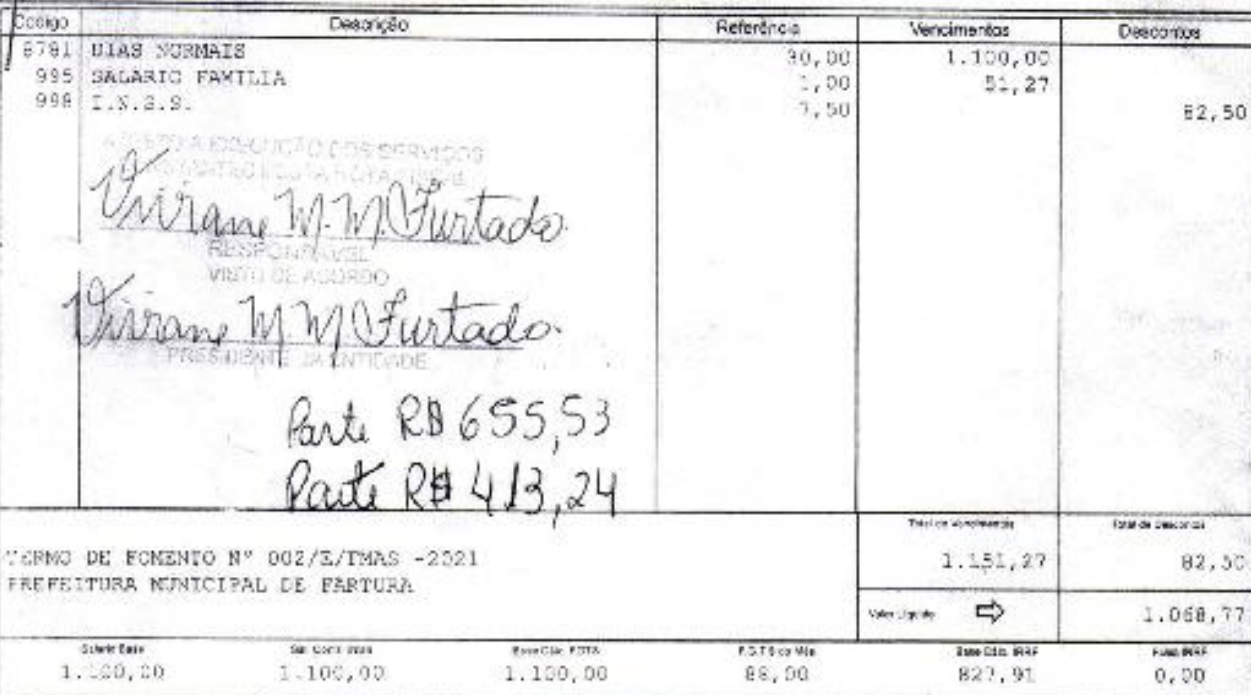 Código Descrição Referência Vencimentos Descontos
8781 DIAS NORMAIS 30,00 1.100,00
995 SALARIO FAMILIA 1,00 51,27
998 I.N.S.S. 7,50 82,50
ATESTO A EXECUÇÃO DOS SERVIÇOS
Viviane M. M. Furtado
RESPONSÁVEL
VISTO DE ACORDO
Viviane M. M. Furtado
PRESIDENTE DA ENTIDADE
Parte R$ 655,53
Parte R$ 413,24
Total de Vencimentos Total de Descontos
TERMO DE FOMENTO Nº 002/E/TMAS -2021 1.151,27 82,50
PREFEITURA MUNICIPAL DE FARTURA
Valor Líquido ⇨ 1.068,77
Salário Base Sal. Contr. INSS Base Cálc. FGTS F.G.T.S do Mês Base Cálc. IRRF Faixa IRRF
1.100,00 1.100,00 1.100,00 88,00 827,91 0,00